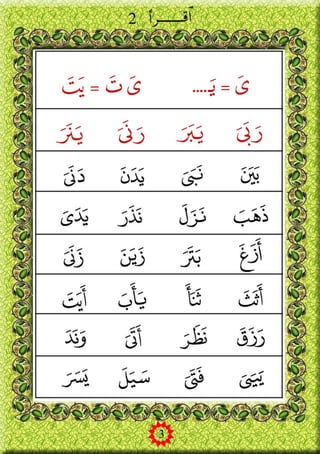 أَقـــرأ 2
ىَ = يَـ.... ىَ تَ = يَتَ
رَبَىَ يَبَرَ رَنَىَ يَنَرَ
بَيَنَ نَبَىَ يَدَنَ دَنَىَ
ذَهَبَ نَزَلَ نَذَرَ يَدَىَ
أَزَغَ بَتَرَ زَيَنَ زَنَىَ
أَثَثَ ثَنَأَ يَأَبَ أَيَتَ
رَزَقَ نَظَرَ أَتَىَ وَنَدَ
يَيَىَ فَتَىَ سَيَلَ يَسَرَ
3